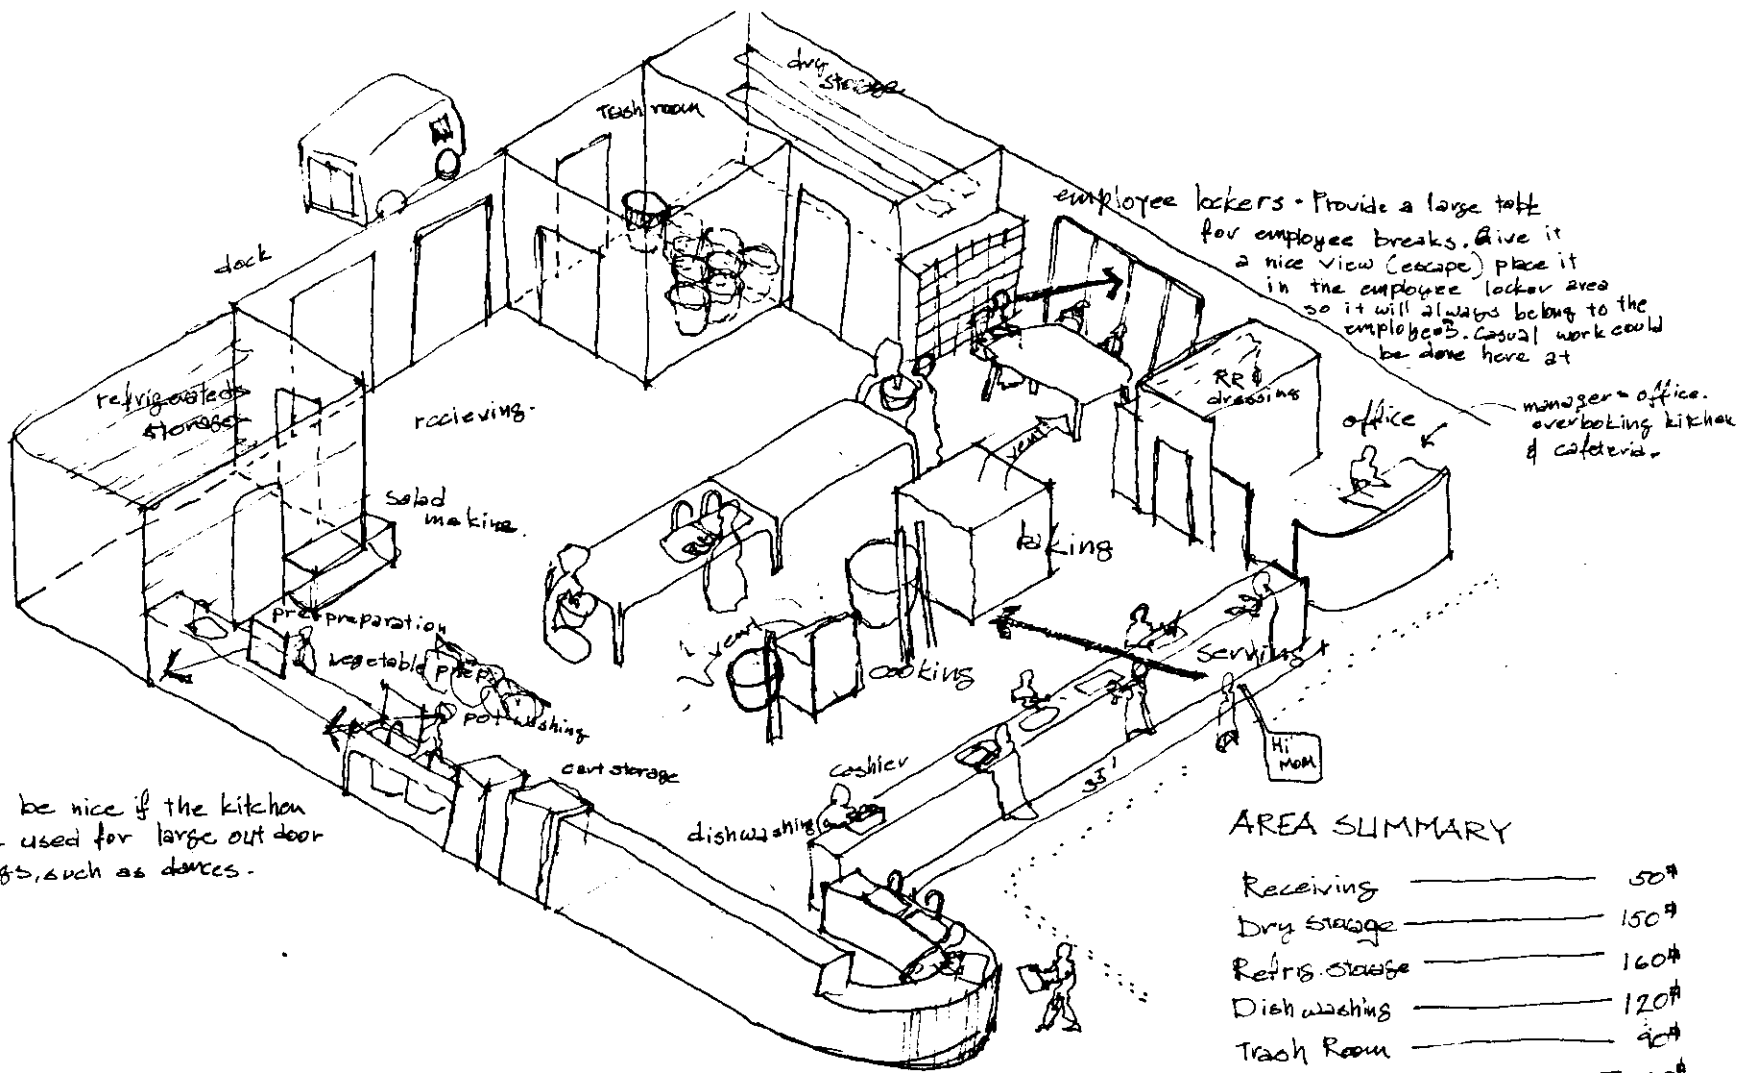 dry
storage
Trash room
dock
employee lockers • Provide a large table
for employee breaks. Give it
a nice view (escape) place it
in the employee locker area
so it will always belong to the
employees. Casual work could
be done here at
refrigerated
storage
recieving.
RR &
dressing
office
manager's office.
overlooking kitchen
& cafeteria.
salad
making.
vent
baking
pre preparation
vegetable prep.
vent
cooking
serving
pot washing
cart storage
cashier
35'
Hi
MOM
dishwashing
be nice if the kitchen
used for large out door
such as dances.
AREA SUMMARY
Receiving 50#
Dry Storage 150#
Refrig. Storage 160#
Dish washing 120#
Trash Room 90#